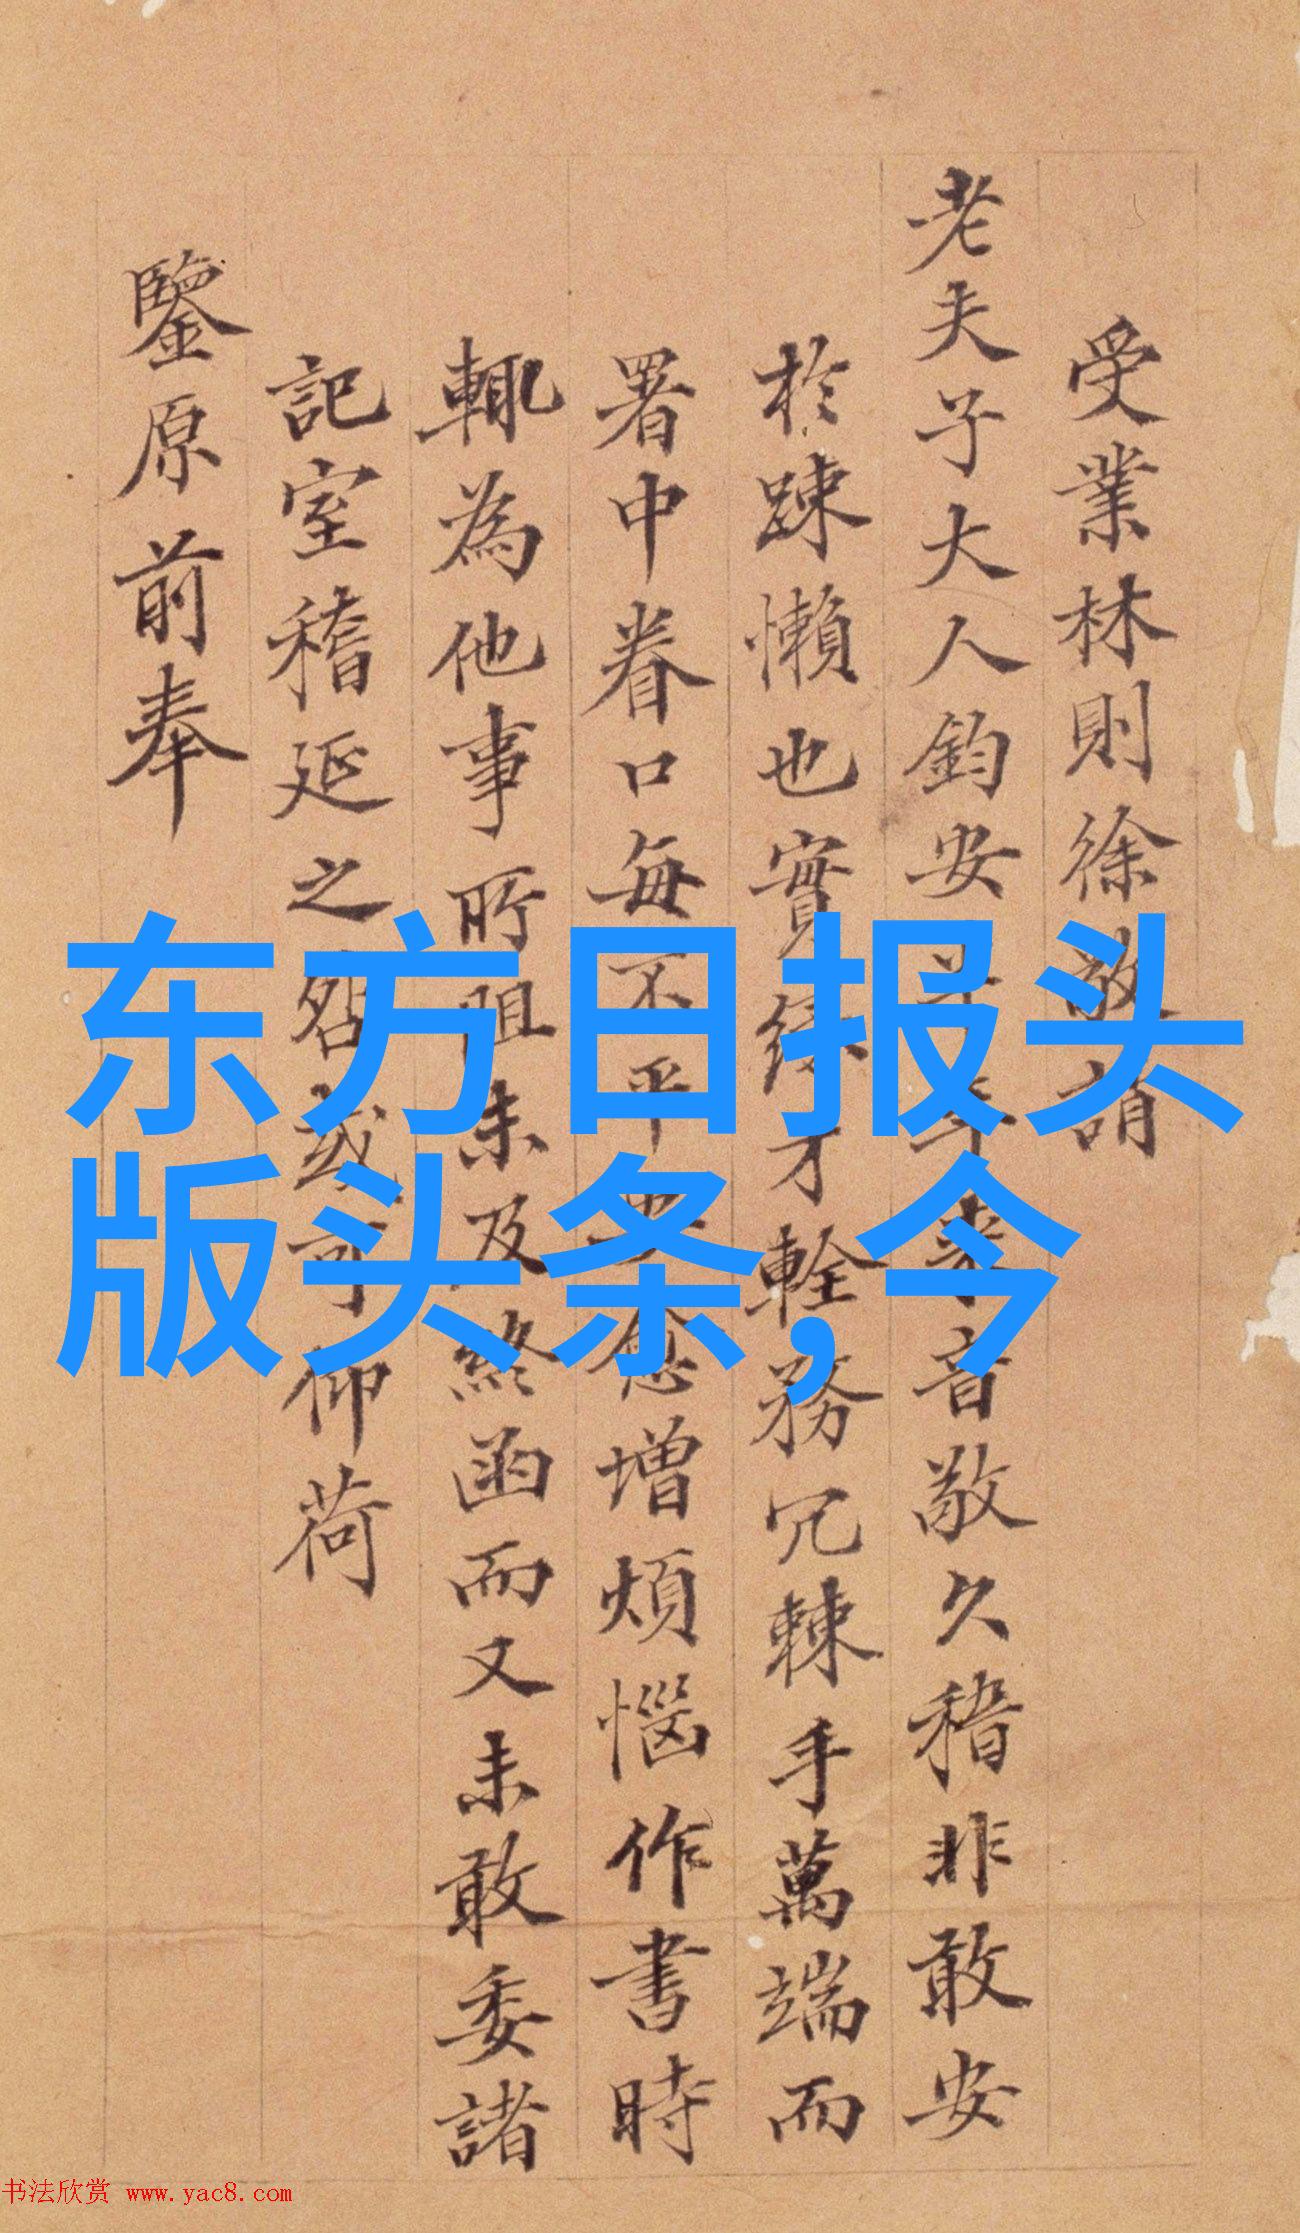 受業林則徐敬請
老夫子大人鈞安 音敬久稽非敢安
於踈懶也實 才輇務冗棘手萬端而
署中眷口每不平 增煩惱作書時
輒為他事所阻未及終函而又未敢委諸
記室稽延之 或可仰荷
鑒原前奉
东方日报头
版头条,今
书法欣赏 www.yac8.com